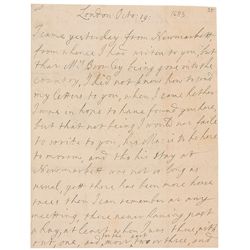 London Octo: 19:
1683
I came yesterday from Newmarkett
from whence I had writen to you, but
that Mr Bromley being gone into the
country, I did not know how to send
my letters to you, when I came hether
I was in hope to have found you here,
but that not being I would not faile
to write to you, his Ma: is to be here
to morrow, and tho his stay at
Newmarkett was not so long as
usual, yett there has been more horse
races then I can remember at any
meetting, there never having past
a day, at least when it was
out, one, and most two or three, and